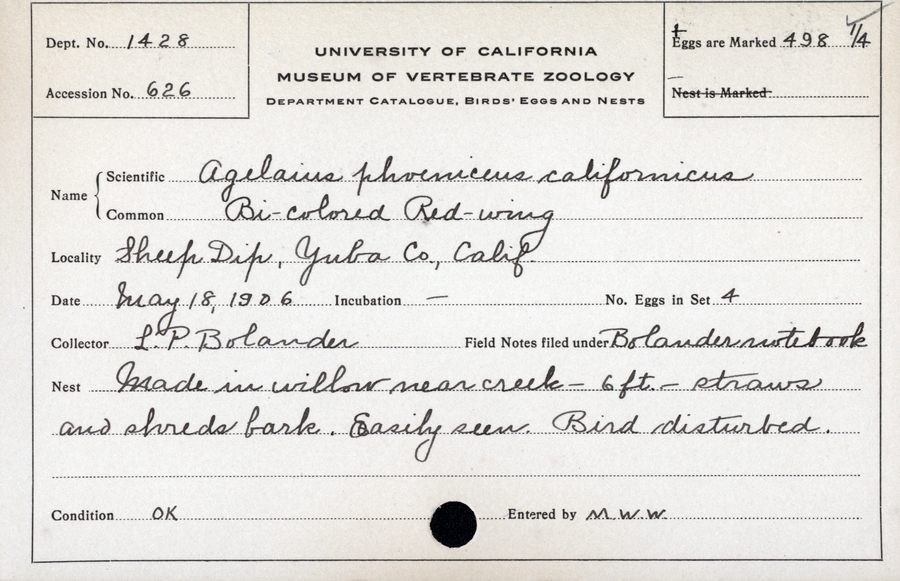 Dept. No. 1428
Accession No. 626
UNIVERSITY OF CALIFORNIA
MUSEUM OF VERTEBRATE ZOOLOGY
DEPARTMENT CATALOGUE, BIRDS' EGGS AND NESTS
Eggs are Marked 498 1/4
Nest is Marked
Name
Scientific Agelaius phoeniceus californicus
Common Bi-colored Red-wing
Locality Sheep Dip, Yuba Co., Calif.
Date May 18, 1906 Incubation — No. Eggs in Set 4
Collector L. P. Bolander Field Notes filed under Bolander notebook
Nest Made in willow near creek — 6 ft. — straws
and shreds bark. Easily seen. Bird disturbed.
Condition OK Entered by M.W.W.